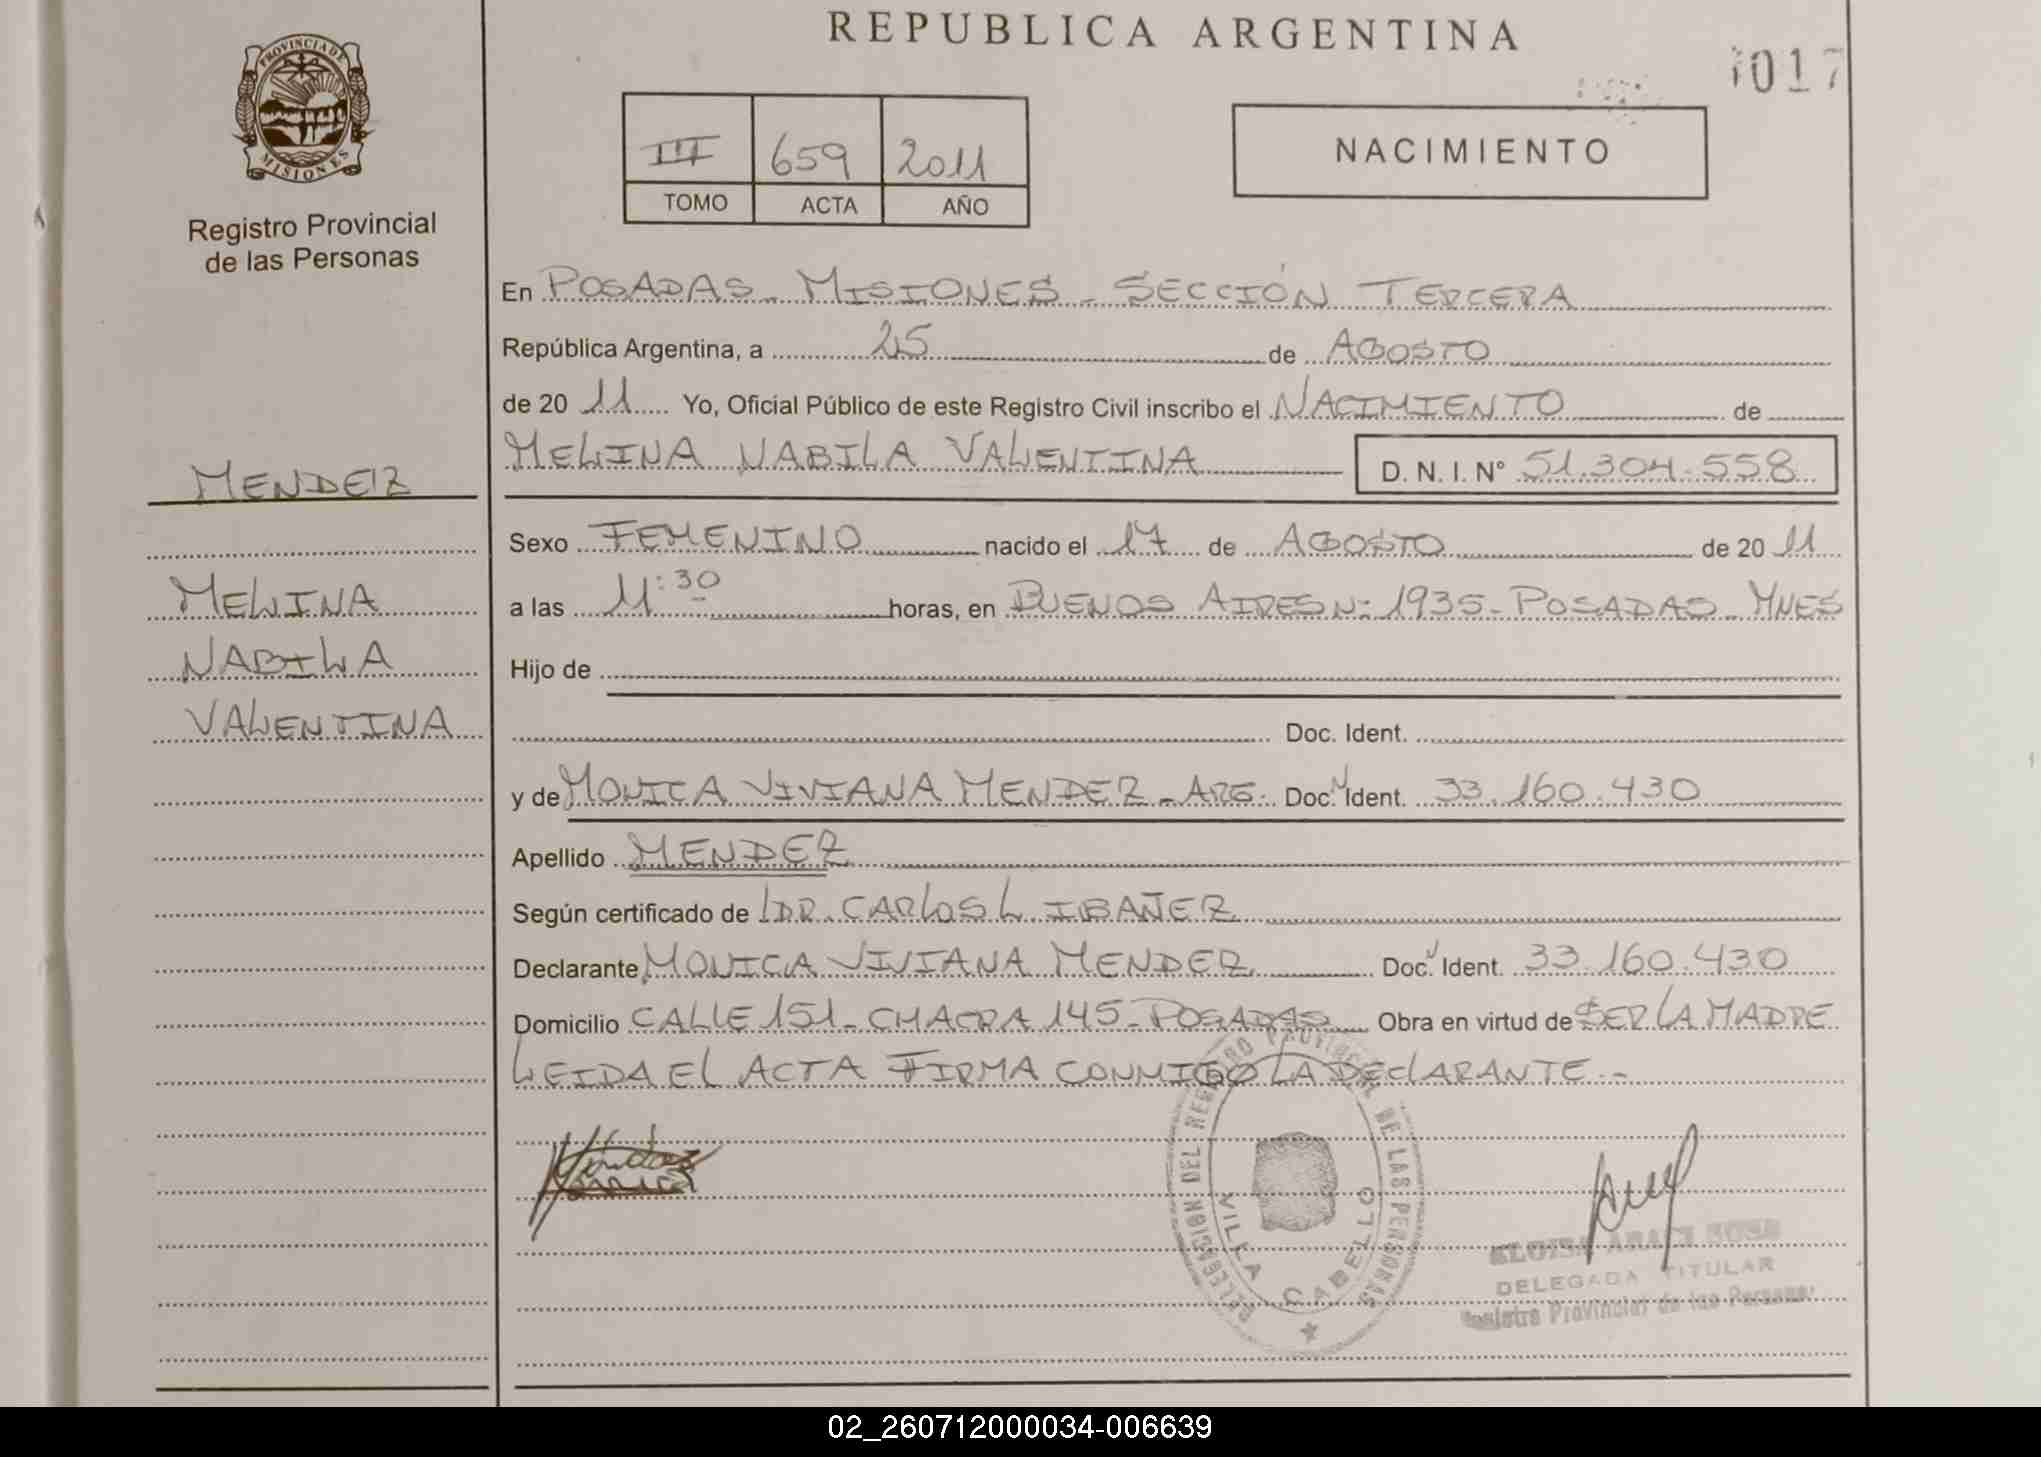 REPUBLICA ARGENTINA
1017
PROVINCIA DE MISIONES
Registro Provincial
de las Personas
III 659 2011
TOMO ACTA AÑO
NACIMIENTO
En POSADAS - MISIONES - SECCIÓN TERCERA
República Argentina, a 25 de AGOSTO
de 20 11 Yo, Oficial Público de este Registro Civil inscribo el NACIMIENTO de
MELINA NABILA VALENTINA D. N. I. N° 51.304.558
MENDEZ
MELINA
NABILA
VALENTINA
Sexo FEMENINO nacido el 17 de AGOSTO de 20 11
a las 11:30 horas, en BUENOS AIRES N: 1935 - POSADAS - MNES
Hijo de
Doc. Ident.
y de MONICA VIVIANA MENDEZ - ARG. Doc. Ident. 33.160.430
Apellido MENDEZ
Según certificado de DR. CARLOS L IBAÑEZ
Declarante MONICA VIVIANA MENDEZ Doc. Ident. 33.160.430
Domicilio CALLE 151 - CHACRA 145 - POSADAS Obra en virtud de SER LA MADRE
LEIDA EL ACTA FIRMA CONMIGO LA DECLARANTE.-
Mendez
Monica
DELEGACION DEL REGISTRO PROVINCIAL DE LAS PERSONAS
VILLA CABELLO
DELEGADA TITULAR
Registro Provincial de las Personas
02_260712000034-006639